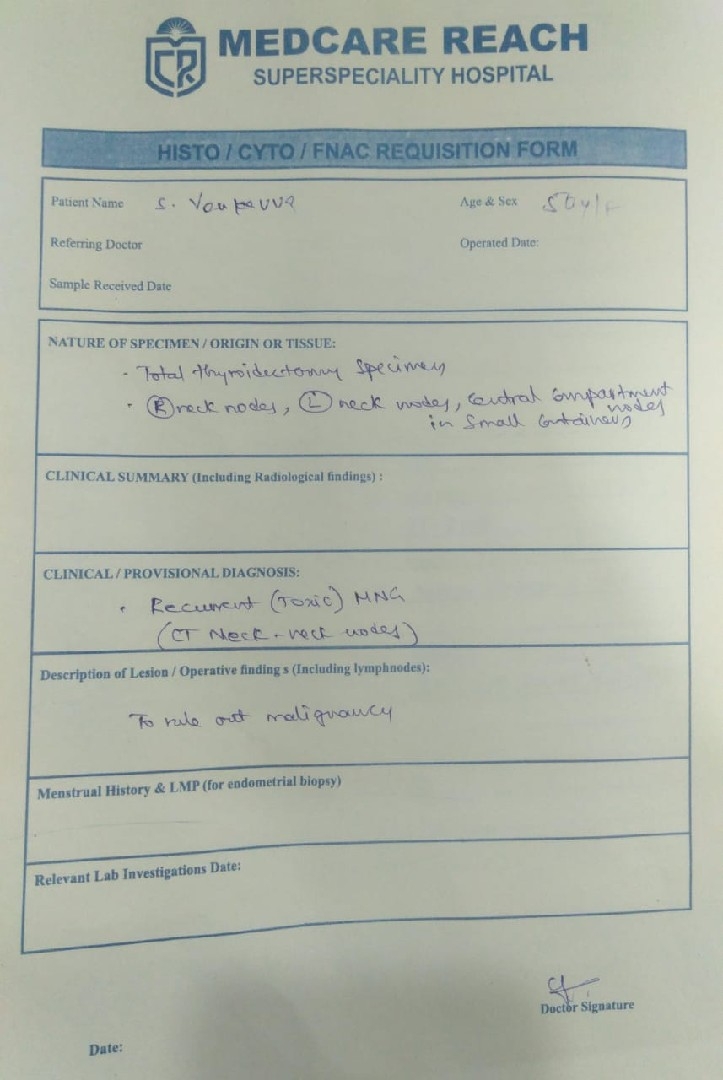 CR
MEDCARE REACH
SUPERSPECIALITY HOSPITAL
HISTO / CYTO / FNAC REQUISITION FORM
Patient Name S.
Age & Sex 50y/F
Referring Doctor
Operated Date:
Sample Received Date
NATURE OF SPECIMEN / ORIGIN OR TISSUE:
- Total thyroidectomy specimen
- R neck nodes, L neck nodes, Central Compartment
nodes
in small containers
CLINICAL SUMMARY (Including Radiological findings) :
CLINICAL / PROVISIONAL DIAGNOSIS:
• Recurrent (Toxic) MNG
(CT Neck - neck nodes)
Description of Lesion / Operative finding s (Including lymphnodes):
To rule out malignancy
Menstrual History & LMP (for endometrial biopsy)
Relevant Lab Investigations Date:
Doctor Signature
Date: